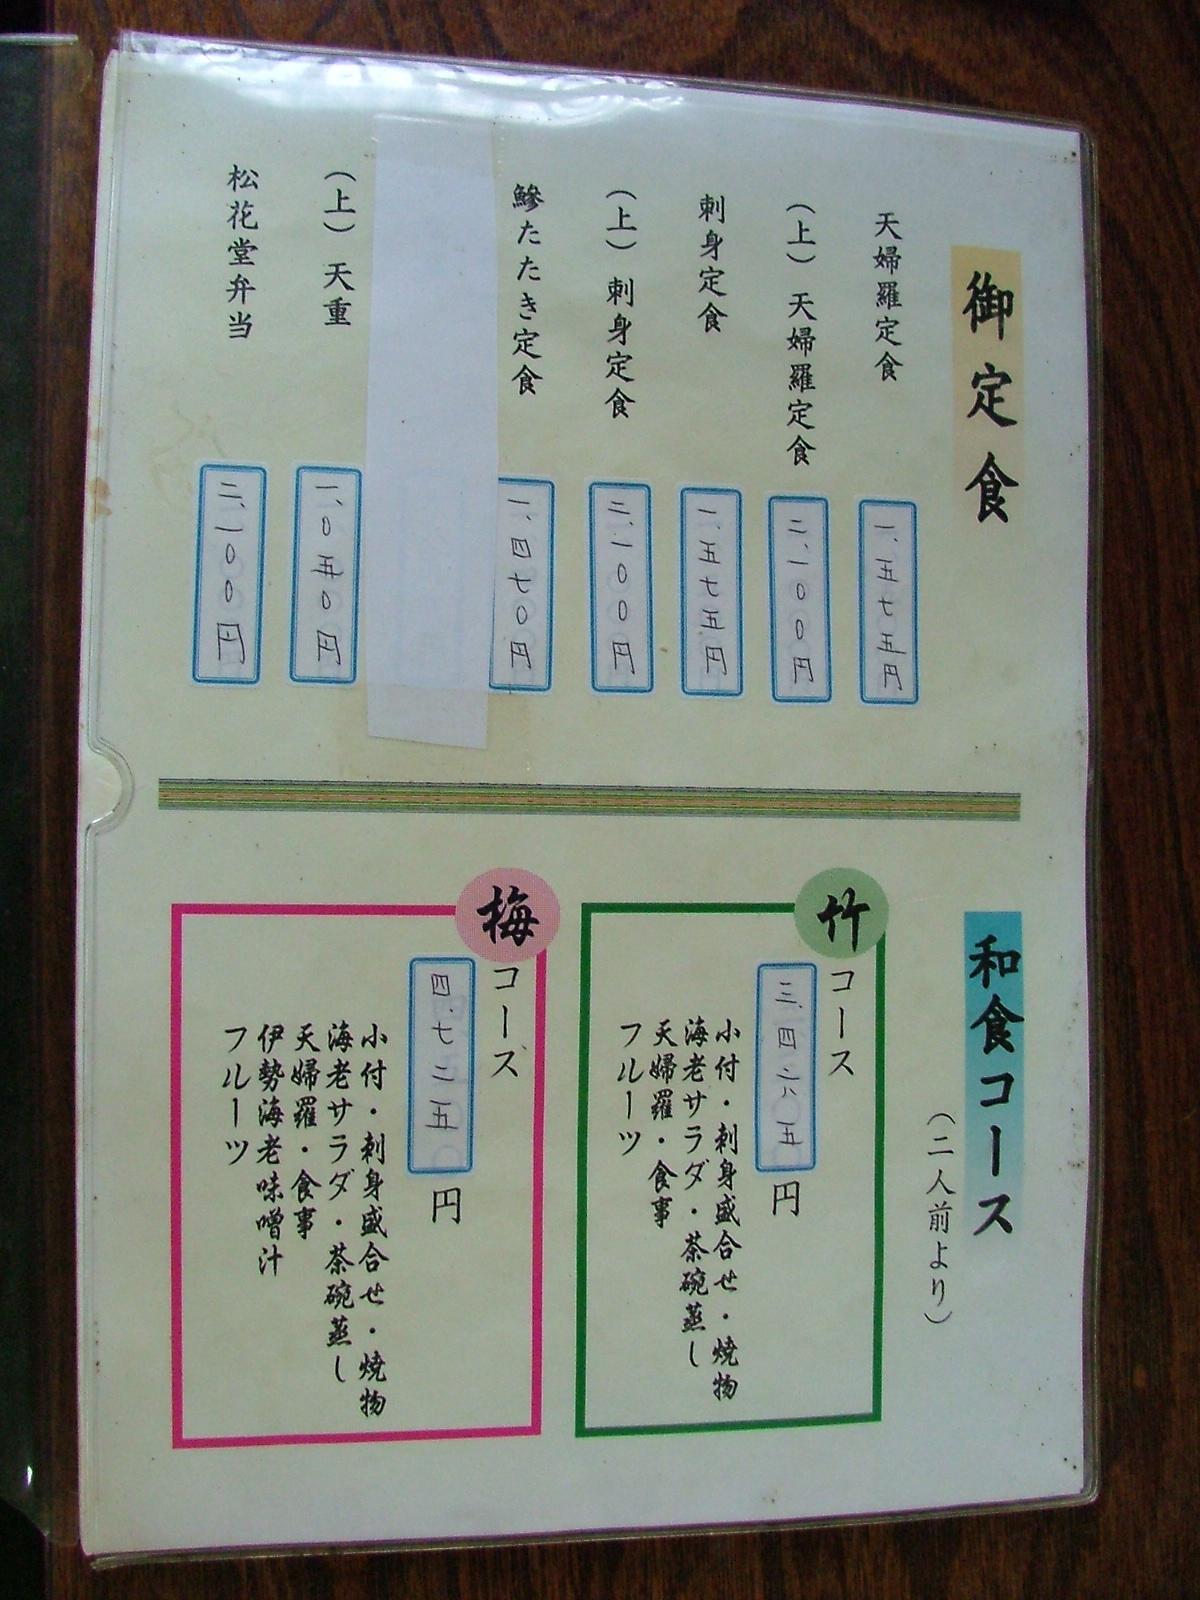 御定食
天婦羅定食
一、五七五円
（上）天婦羅定食
二、一00円
刺身定食
一、五七五円
（上）刺身定食
二、一00円
鰺たたき定食
一、四七0円
（上）天重
一、0五0円
松花堂弁当
二、一00円
和食コース
（二人前より）
竹
コース
三、四六五
円
小付・刺身盛合せ・焼物
海老サラダ・茶碗蒸し
天婦羅・食事
フルーツ
梅
コース
四、七二五
円
小付・刺身盛合せ・焼物
海老サラダ・茶碗蒸し
天婦羅・食事
伊勢海老味噌汁
フルーツ